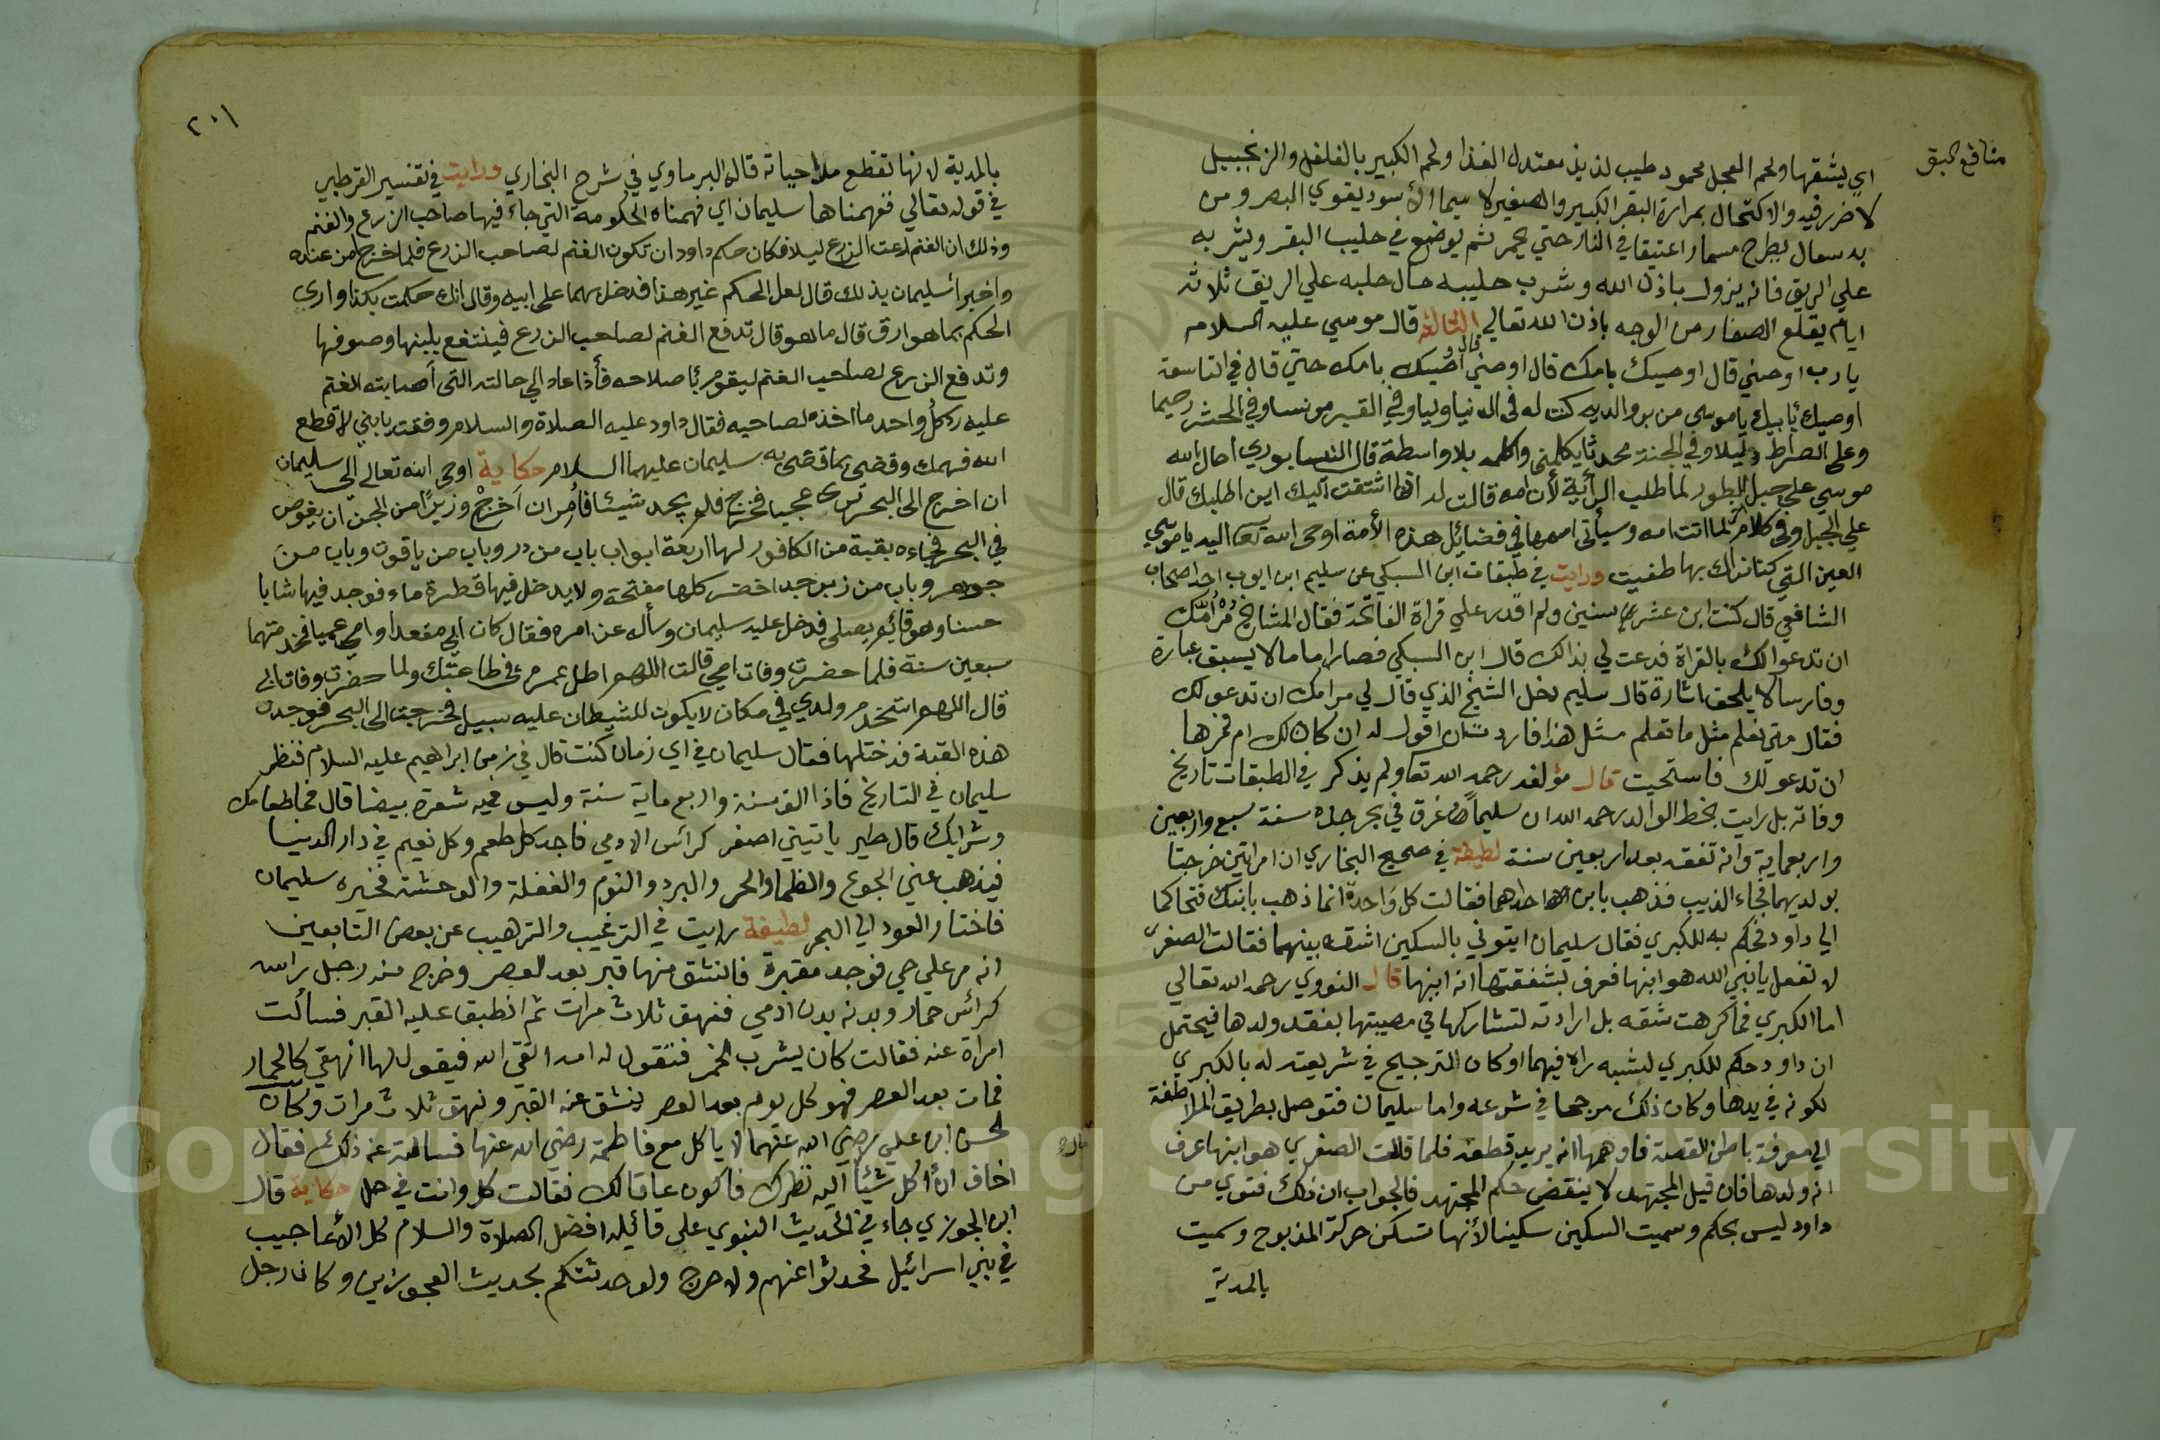 منافع البقر
اي يشقها ولحم العجل محمود طيب لذيذ معتدل الغذا ولحم الكبير بالفلفل والزنجبيل
لاضرر فيه والاكتحال بمرارة البقر الكبير والصغير لا سيما الأسود يقوي البصر ومن
به سعال يطرح مسمارا عتيقا في النار حتي يحمر ثم يوضع في حليب البقر ويشربه
علي الريق فانه يزول باذن الله وشرب حليبه حال حلبه علي الريق ثلاثة
ايام يقلع الصفار من الوجه باذن الله تعالي الثالثة قال موسي عليه السلام
يا رب اوصني قال اوصيك بامك قال اوصني قال اوصيك بامك حتي قال في التاسعة
اوصيك بأبيك يا موسي من بر والديه كنت له في الدنيا وليا وفي القبر مونسا وفي الحشر رحيما
وعلى الصراط دليلا وفي الجنة محدثا يكلمني واكلمه بلا واسطة قال النيسابوري احال الله
موسي علي جبل الطور لما طلب الرأية لأن امه قالت له اذا اشتقت اليك اين اطلبك قال
علي الجبل وفي كلام لما اتت امه وسيأتي امرها في فضائل هذه الأمة اوحى الله تعا اليه يا موسي
العين التي كنا نراك بها طفيت ورايت في طبقات ابن السبكي عن سليم ابن ايوب احد اصحاب
الشافعي قال كنت ابن عشر سنين ولم اقدر علي قراة الفاتحة فقال المشايخ مُرْ اُمّك
ان تدعوا لك بالقراة فدعت لي بذالك قال ابن السبكي فصار اماما لا يسبق عبارة
وفارسا لا يلحق اشارة قال سليم دخل الشيخ الذي قال لي مر امك ان تدعو لك
فقال متي نعلم مثل ما تعلم مثل هذا فاردت ان اقول له ان كان لك ام فمرها
ان تدعو لك فاستحيت قال مؤلفه رحمه الله تعا ولم يذكر في الطبقات تاريخ
وفاته بل رايت بخط الوالد رحمه الله ان سليما غرق في بحر جدة سنة سبع واربعين
واربعماية وانه تفقه بعد اربعين سنة لطيفة في صحيح البخاري ان امراتين خرجتا
بولديهما فجاء الذيب فذهب بابن احداهما فقالت كل واحدة انما ذهب بابنك فتحاكما
الي داود فحكم به للكبري فقال سليمان ايتوني بالسكين اشقه بينهما فقالت الصغرى
لا تفعل يا نبي الله هو ابنها فعرف بشفقتها انه ابنها قال النووي رحمه الله تعالي
اما الكبري فما كرهت شقه بل ارادته لتشاركها في مصيبتها بفقد ولدها فيحتمل
ان داود حكم للكبري لشبه راه فيهما او كان الترجيح في شريعته له بالكبري
لكونه في يدها وكان ذلك مرجحا في شرعه واما سليمان فتوصل بطريق الملاطفة
الي معرفة باطن القصة فاوهمها انه يريد قطعه فلما قالت الصغري هو ابنها عرف
انه ولدها فان قيل المجتهد لا ينقض حكم المجتهد فالجواب ان ذلك فتوي من
داود ليس بحكم وسميت السكين سكينا لأنها تسكن حركة المذبوح وسميت
بالمدية
٢٠١
بالمدية لانها تقطع مدا حياته قال البرماوي في شرح البخاري ورايت في تفسير القرطبي
في قوله تعالي ففهمناها سليمان اي فهمناه الحكومة التي جاء فيها صاحب الزرع والغنم
وذلك ان الغنم رعت الزرع ليلا فكان حكم داود ان تكون الغنم لصاحب الزرع فلما خرجا من عنده
واخبرا سليمان بذلك قال لعل الحكم غير هذا فدخل بهما على ابيه وقال انك حكمت بكذا وارى
الحكم بما هو ارفق قال ما هو قال تدفع الغنم لصاحب الزرع فينتفع بلبنها وصوفها
وتدفع الزرع لصاحب الغنم ليقوم بأصلاحه فأذا عاد الي حالته التى اصابته الغنم
عليه رد كل واحد ما اخذه لصاحبه فقال داود عليه الصلاة والسلام وفقت يا بني لا قطع
الله فهمك وقضى بما قضى به سليمان عليهما السلام حكاية اوحى الله تعالى الى سليمان
ان اخرج الى البحر ترى عجيبا فخرج فلم يجد شيئا فأمر ان اَخرِج وزيرًا من الجن ان يغوص
في البحر فجاءه بقبة من الكافور لها اربعة ابواب باب من در وباب من ياقوت وباب من
جوهر وباب من زبرجد اخضر كلها مفتحة ولا يدخل فيها قطرة ماء فوجد فيها شابا
حسنا وهو قائم يصلي فدخل عليه سليمان وسأله عن امره فقال كان ابي مقعدا وامي عميا فخدمتهما
سبعين سنة فلما حضرت وفات امي قالت اللهم اطل عمره في طاعتك ولما حضرت وفات ابي
قال اللهم استخدم ولدي في مكان لا يكون للشيطان عليه سبيل فخرجت الى البحر فوجدت
هذه القبة فدخلتها فقال سليمان في اي زمان كنت قال في زمن ابراهيم عليه السلام فنظر
سليمان في التاريخ فاذا الف سنة واربع ماية سنة وليس فيه شعرة بيضا قال فما طعامك
وشرابك قال طير ياتيني اصفر كرأس الادمي فاجد كل طعم وكل نعيم في دار الدنيا
فيذهب عني الجوع والظما والحر والبرد والنوم والغفلة والوحشة فخيره سليمان
فاختار العود الي البحر لطيفة رايت في الترغيب والترهيب عن بعض التابعين
انه مر علي حي فوجد مقبرة فانشق منها قبر بعد العصر وخرج منه رجل راسه
كرأس حمار وبدنه بدن ادمي فنهق ثلاث مرات ثم انطبق عليه القبر فسألت
امراة عنه فقالت كان يشرب الخمر فتقول له امه اتقي الله فيقول لها انهقي كالحمار
فمات بعد العصر فهو كل يوم بعد العصر ينشق عنه القبر ونهق ثلاث مرات وكان
الحسن ابن علي رضي الله عنهما لا ياكل مع فاطمة رضي الله عنها فسالته عنه ذلك فقال
اخاف ان أكل شيئا اليه نظرك فاكون عاقا لك فقالت كل وانت في حل حكاية قال
ابن الجوزي جاء في الحديث النبوي على قائيله افضل الصلاة والسلام كل الأعاجيب
في بني اسرائيل فحدثوا عنهم ولا حرج ولو حدثتكم بحديث العجوزين وكان رجل